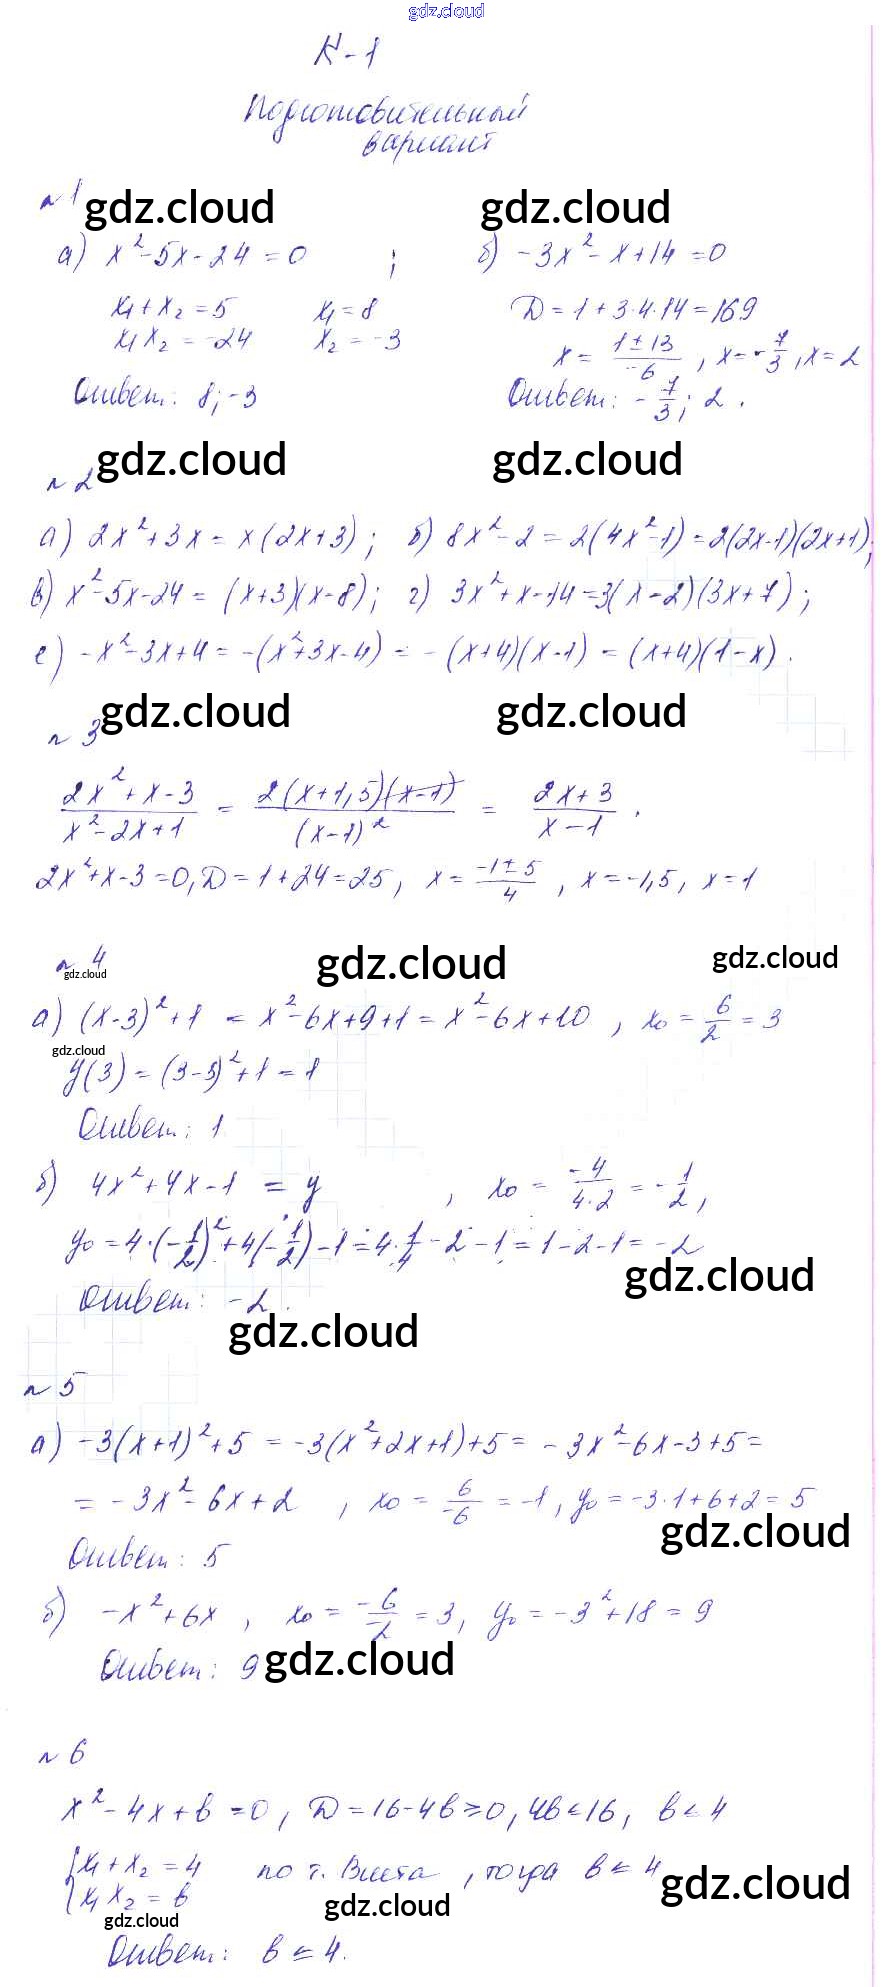 gdz.cloud
К-1
Подготовительный
вариант
№ 1
gdz.cloud gdz.cloud
а) x² - 5x - 24 = 0 ; б) -3x² - x + 14 = 0
x₁ + x₂ = 5 x₁ = 8 D = 1 + 3·4·14 = 169
x₁x₂ = -24 x₂ = -3 x = (1 ± 13)/-6, x = -7/3, x = 2
Ответ: 8; -3 Ответ: -7/3; 2.
gdz.cloud gdz.cloud
№ 2
а) 2x² + 3x = x(2x+3); б) 8x² - 2 = 2(4x² - 1) = 2(2x-1)(2x+1);
в) x² - 5x - 24 = (x+3)(x-8); г) 3x² + x - 14 = 3(x-2)(3x+7);
е) -x² - 3x + 4 = -(x² + 3x - 4) = -(x+4)(x-1) = (x+4)(1-x).
gdz.cloud gdz.cloud
№ 3
(2x² + x - 3)/(x² - 2x + 1) = 2(x+1,5)(x-1)/(x-1)² = (2x+3)/(x-1).
2x² + x - 3 = 0, D = 1 + 24 = 25, x = (-1 ± 5)/4, x = -1,5, x = 1
№ 4
gdz.cloud gdz.cloud gdz.cloud
а) (x-3)² + 1 = x² - 6x + 9 + 1 = x² - 6x + 10, x₀ = 6/2 = 3
gdz.cloud
y(3) = (3-3)² + 1 = 1
Ответ: 1
б) 4x² + 4x - 1 = y, x₀ = -4/(4·2) = -1/2,
y₀ = 4·(-1/2)² + 4(-1/2) - 1 = 4·1/4 - 2 - 1 = 1 - 2 - 1 = -2
gdz.cloud
Ответ: -2.
gdz.cloud
№ 5
а) -3(x+1)² + 5 = -3(x² + 2x + 1) + 5 = -3x² - 6x - 3 + 5 =
= -3x² - 6x + 2, x₀ = 6/-6 = -1, y₀ = -3·1 + 6 + 2 = 5
gdz.cloud
Ответ: 5
б) -x² + 6x, x₀ = -6/-2 = 3, y₀ = -3² + 18 = 9
Ответ: 9
gdz.cloud
№ 6
x² - 4x + b = 0, D = 16 - 4b ≥ 0, 4b ≤ 16, b ≤ 4
{x₁ + x₂ = 4 по т. Виета, тогда b ≤ 4
{x₁x₂ = b
gdz.cloud
gdz.cloud
gdz.cloud
Ответ: b ≤ 4.